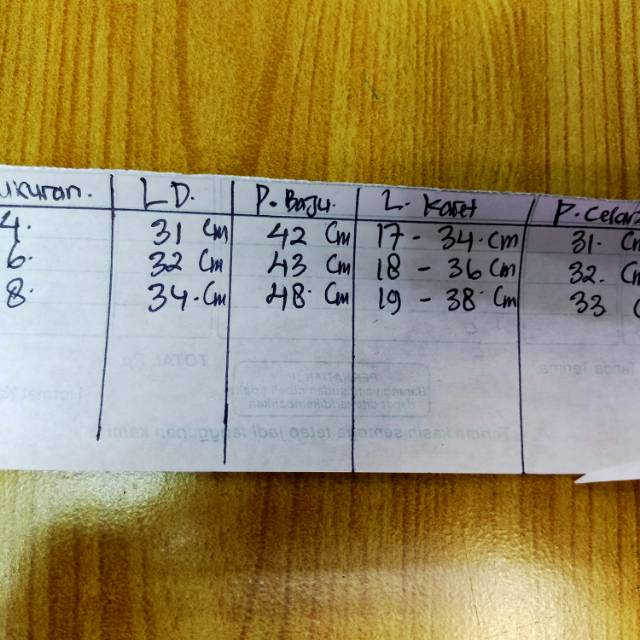 ukuran. L D. P. Baju. L. Karet P. Celan
4. 31 Cm 42 Cm 17 - 34. Cm 31. Cm
6. 32 Cm 43 Cm 18 - 36 Cm 32. Cm
8. 34. Cm 48. Cm 19 - 38. Cm 33 C
TOTAL